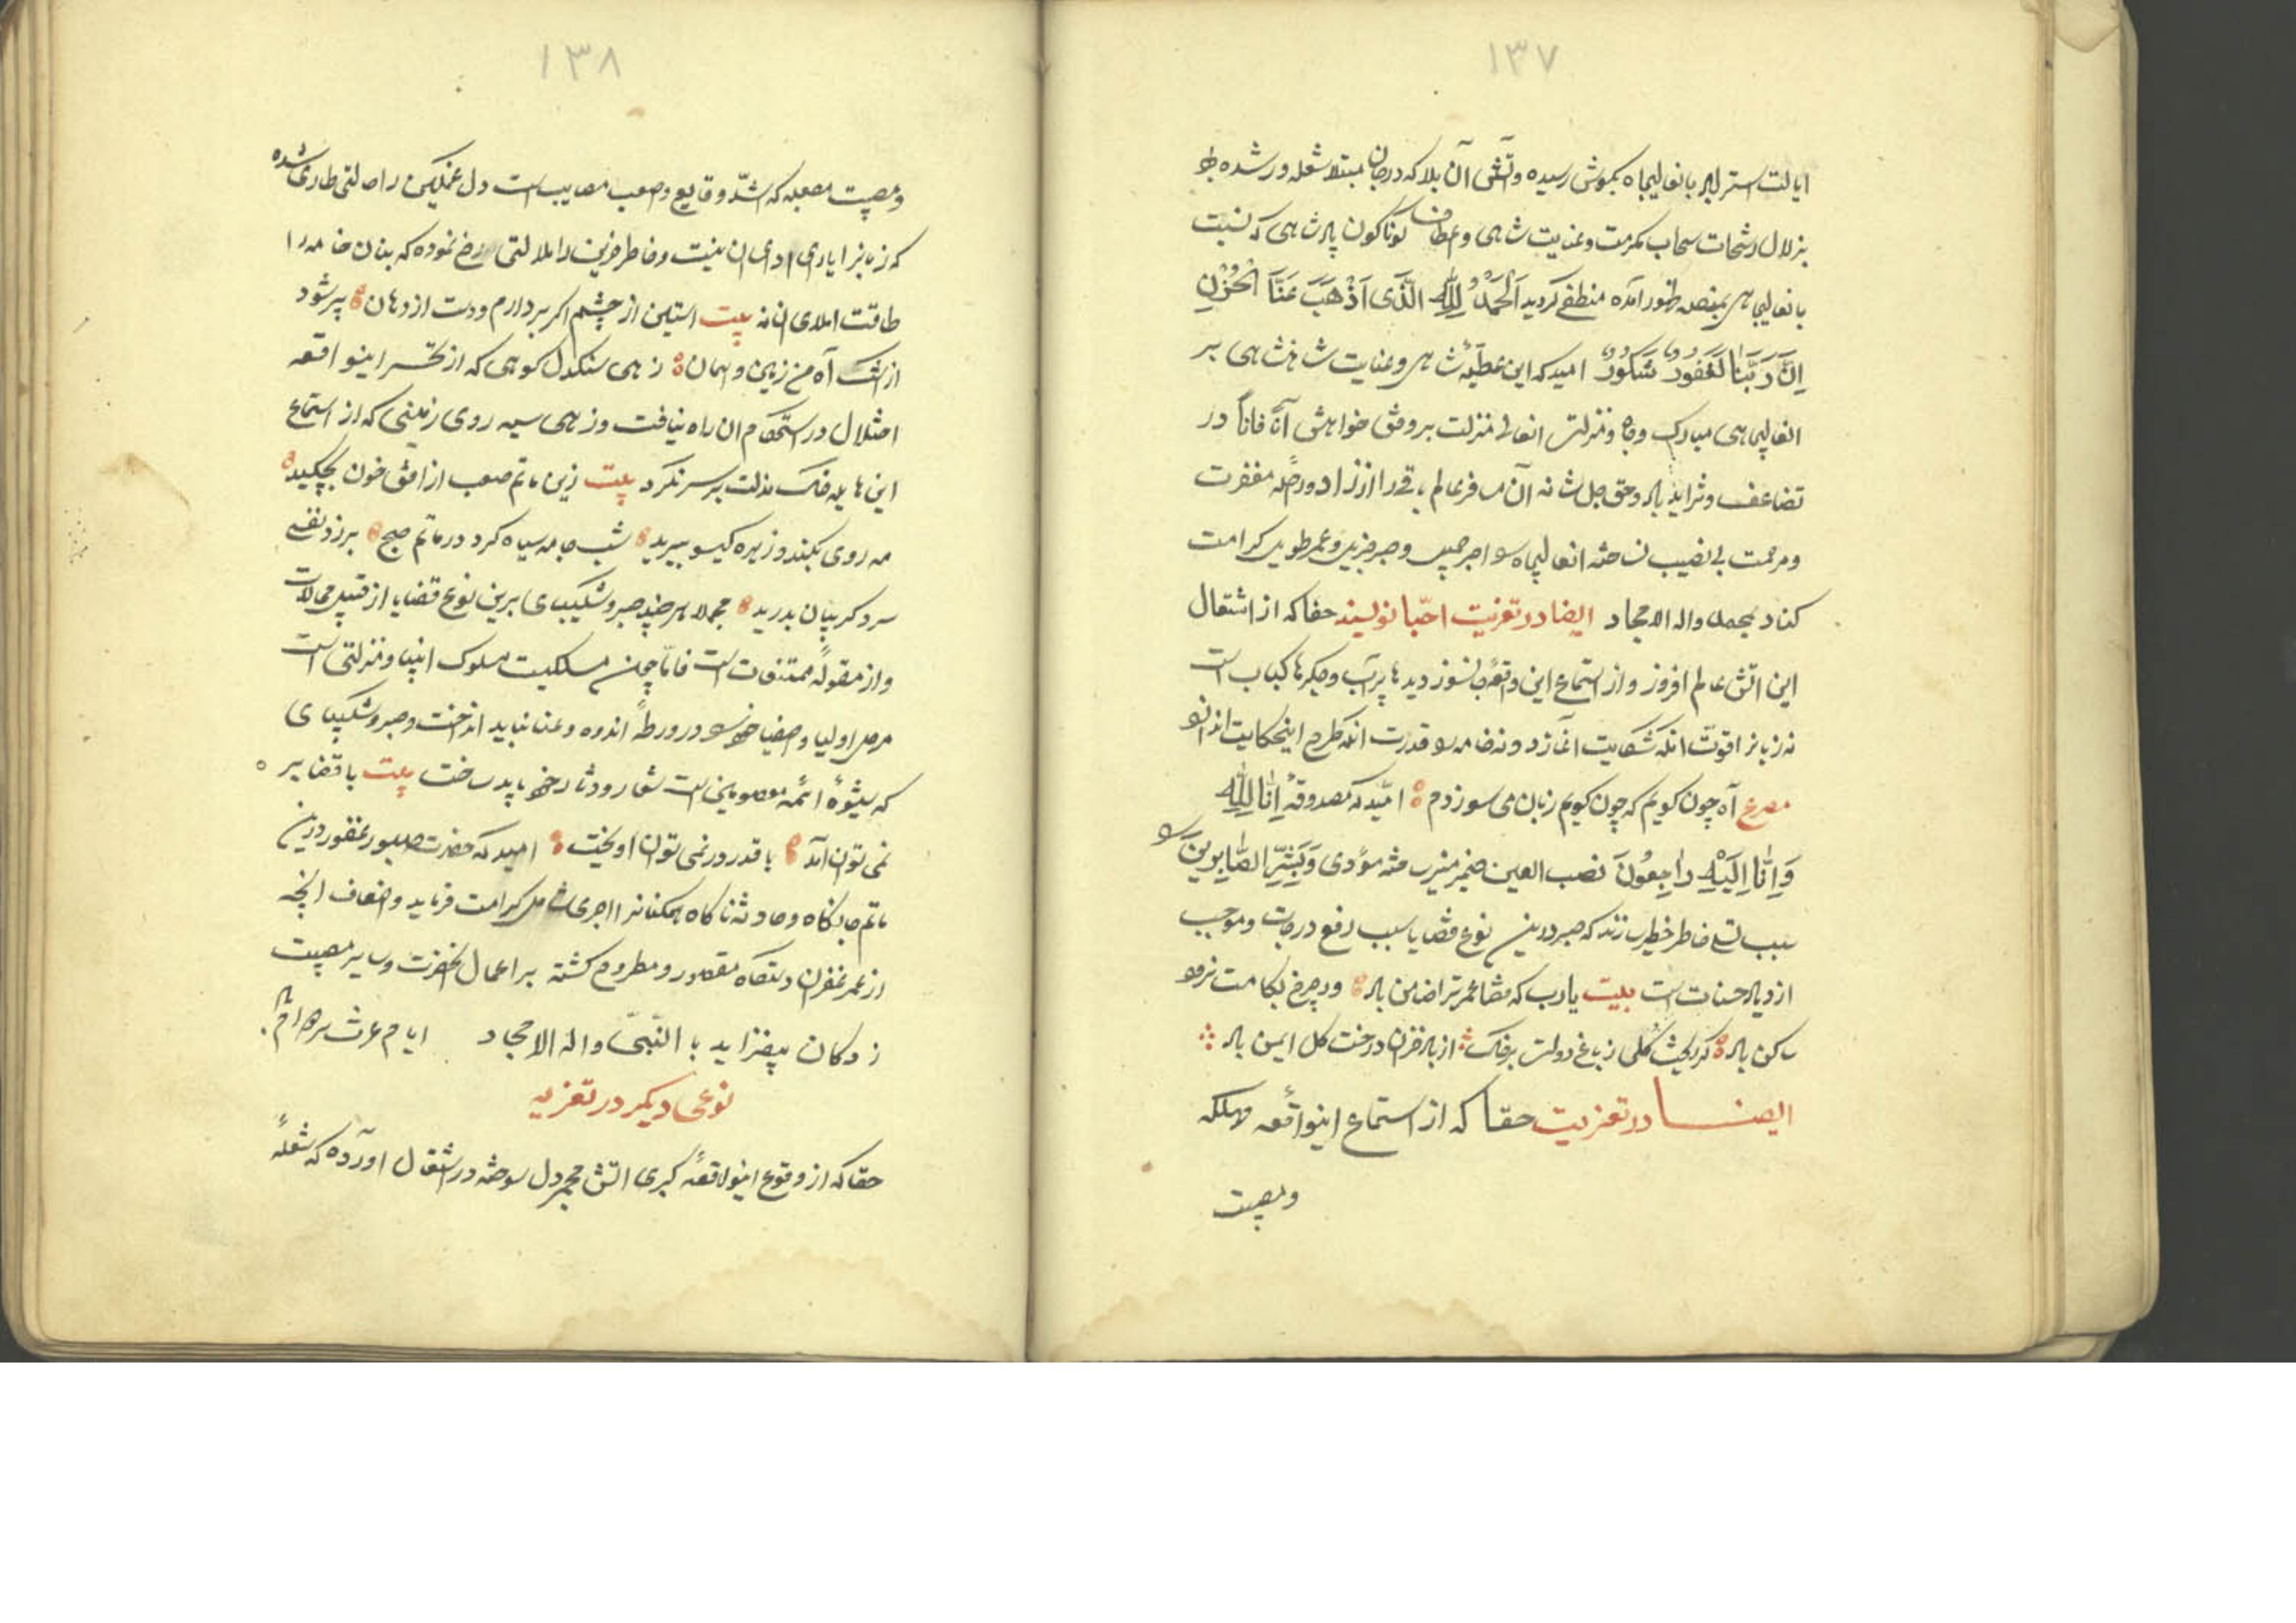 ۱۳۷
ایالت استرلبر بانعالیجاه بکوش رسیده و آتش آن بلا که درجان مبتلا شعله ور شده بود
بزلال رشحات سحاب مکرمت و عنایت شاهی و عطاف کوناکون پادشاهی که نسبت
بانعالیجاهی بمنصه ظهور آمده منطفی کردید اَلْحَمْدُ لِلّٰهِ الَّذی اَذْهَبَ عَنَّا الْحُزْنَ
اِنَّ رَبَّنا لَغَفُورٌ شَکُورٌ امید که این عطیّهٔ شاهی و عنایت شاهنشاهی بر
انعالیجاهی مبارک و جاه و منزلتش انعالی منزلت بر وفق خواهش آناً فاناً در
تضاعف و تزاید باد و حق جل شانه آن مسافر عالم باقی را از زاد و رحله مغفرت
و مرحمت بی نصیب نساخته انعالیجاه را اجر جمیل و صبر جزیل و عمر طویل کرامت
کناد بمحمد واله الامجاد ایضا در تعزیت احبّا نویسند حقا که از اشتعال
این اتش عالم افروز و از استماع این واقعهٔ جانسوز دیدها پرآب و جکرها کباب است
نه زبانرا قوّت انکه شکایت اغاز د و نه خامه را قدرت انکه طرح اینحکایت اندازد
مصرع آه چون کویم که چون کویم زبان می سوزدم امّید که مصدوقهٔ اِنّا لِلّٰهِ
وَ اِنّا اِلَیْهِ راجِعُونَ نصب العین ضمیر منیر ساخته مؤدی وَ بَشِّرِ الصّابِرین را
سبب تسلی خاطر خطیر سازند که صبر در این نوع قضایا سبب رفع درجات و موجب
ازدیاد حسنات است بیت یارب که قضا عمر ترا ضامن باد ور چرخ بکامت نرود
ساکن باد کر ریخت کلی ز باغ دولت بر خاک از باد خزان درخت کل ایمن باد
ایضا در تعزیت حقا که از استماع اینواقعه مهلکه
و مصیبت
۱۳۸
و مصیبت معضله که اشدّ وقایع و صعب مصایب است دل غمکین را حالتی طاری شده
که زبانرا یارای ادای ان نیست و خاطر حزین را ملالتی رخ نموده که بنان خامه را
طاقت املای ان نه بیت استین از چشم اکر بردارم و دست از دهان پر شود
از اشک آه من زمین و اسمان زهی سنکدل کوهی که از تحسر اینواقعه
اختلال در استحکام ان راه نیافت و زهی سیه روی زمینی که از استماع
این هایله خاک مذلت بر سر نکرد بیت زین ماتم صعب از افق خون بچکید
مه روی بکند و زهره کیسو ببرید شب جامه سیاه کرد در ماتم صبح برزد نفسی
سرد کریبان بدرید مجملا هر چند صبر و شکیبای برین نوع قضایا از قبیل محالات
و از مقولهٔ ممتنعات است فامّا چون مسلکیست مسلوک انبیا و منزلتی است
مر اولیا و اصفیا خود را در ورطهٔ اندوه و عنا نباید انداخت و صبر و شکیبای
که شیوهٔ ائمه معصومین است شعار و دثار خود باید ساخت بیت با قضا بر
نمی توان آمد با قدر در نمی توان اویخت امید که حضرت صبور غفور درین
ماتم جانکاه و حادثه ناکاه همکنانرا اجری شامل کرامت فرماید و اضعاف انچه
از عمر مغفرن دستکاه مقصور و مطروح کشته بر اعمال انحضرت و سایر مصیبت
زدکان بیفزاید با النّبیّ واله الامجاد ایام عزت
نوعی دیکر در تعزیه
حقا که از وقوع اینواقعهٔ کبری اتش مجمر دل سوخته در اشتعال اورده که شعلهٔ